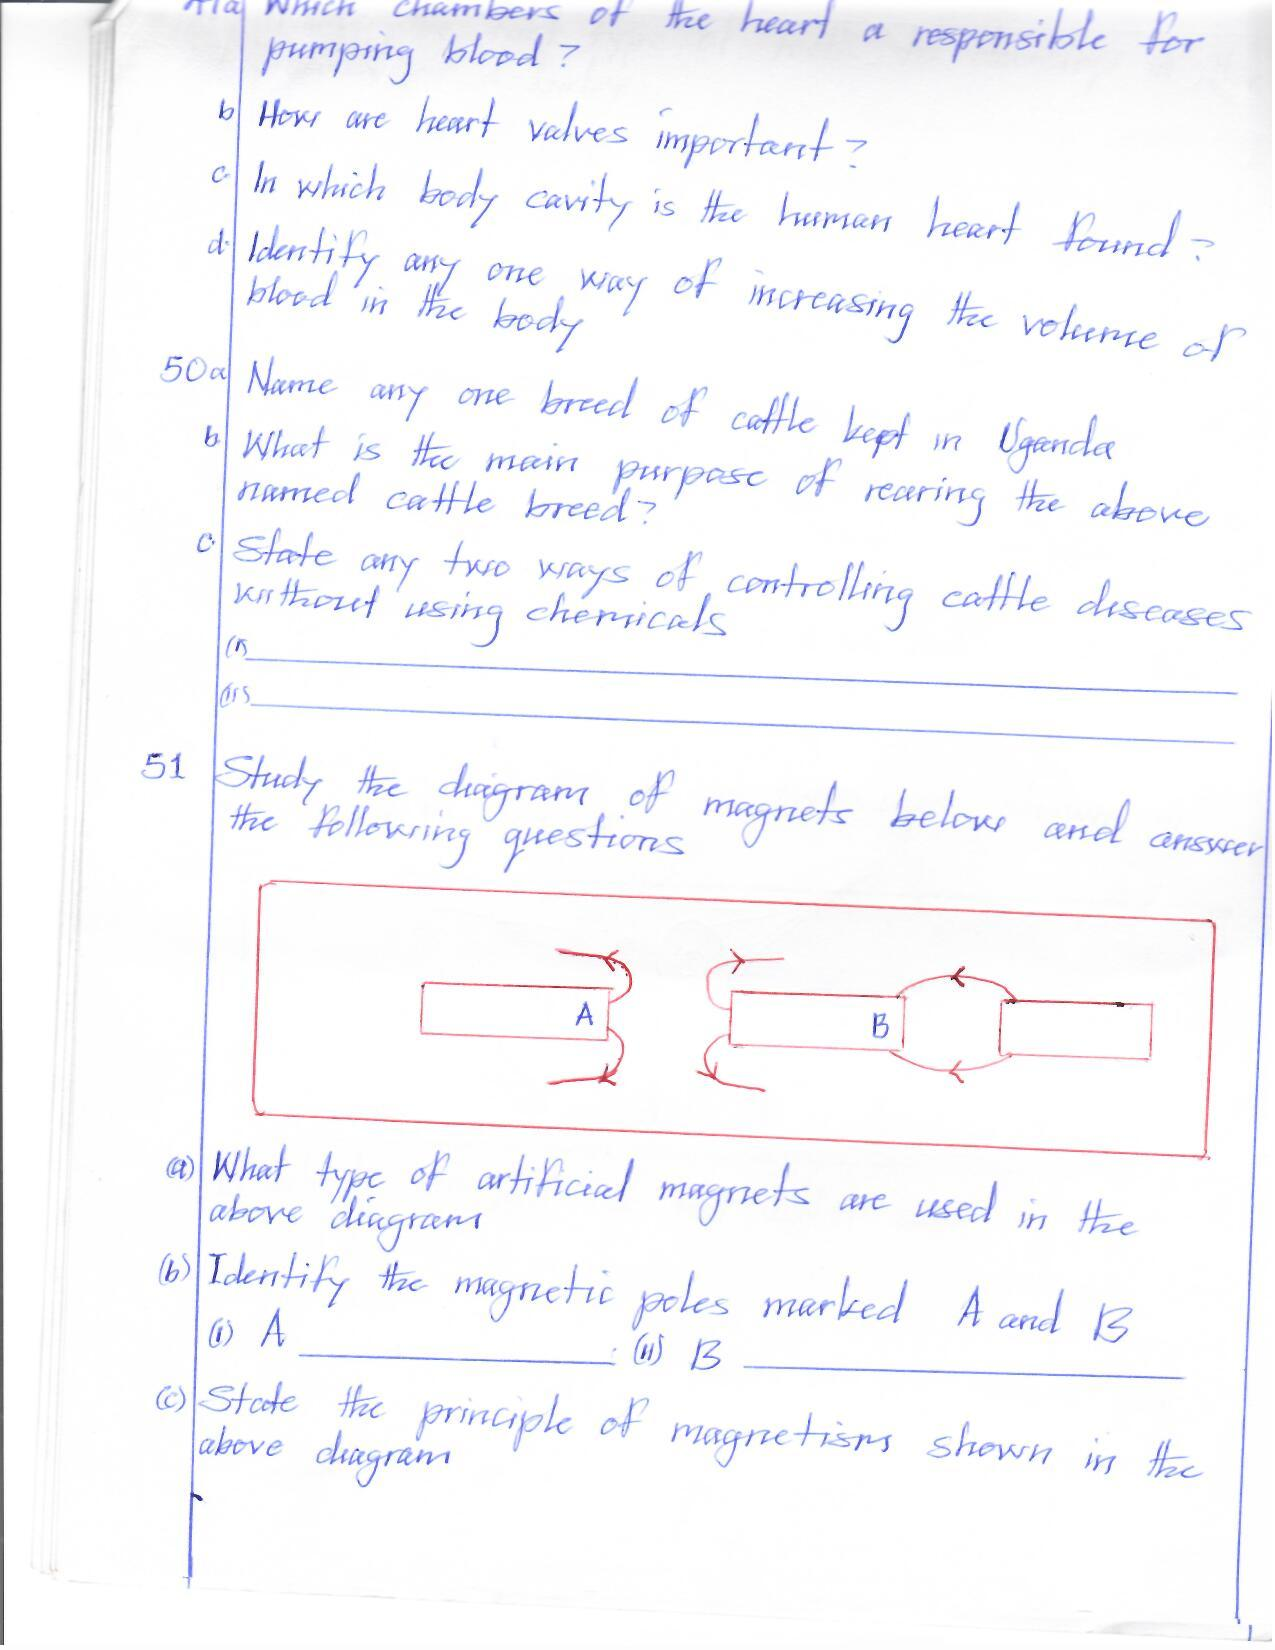 Which chambers of the heart a responsible for
pumping blood?
b How are heart valves important?
c. In which body cavity is the human heart found?
d. Identify any one way of increasing the volume of
blood in the body
50a Name any one breed of cattle kept in Uganda
b. What is the main purpose of rearing the above
named cattle breed?
c State any two ways of controlling cattle diseases
without using chemicals
(i)
(ii)
51 Study the diagram of magnets below and answer
the following questions
A B
(a) What type of artificial magnets are used in the
above diagram
(b) Identify the magnetic poles marked A and B
(i) A (ii) B
(c) State the principle of magnetism shown in the
above diagram